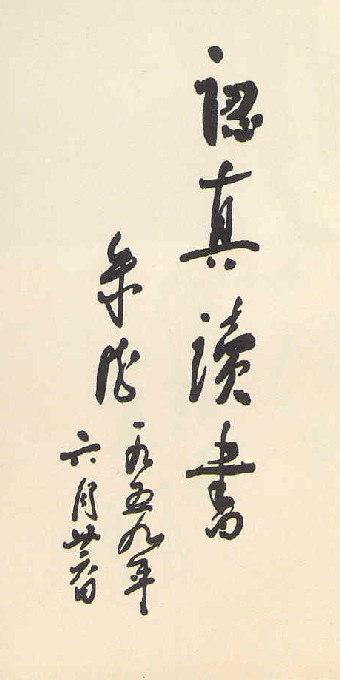 認真讀書
朱德
一九五九年
六月廿二日